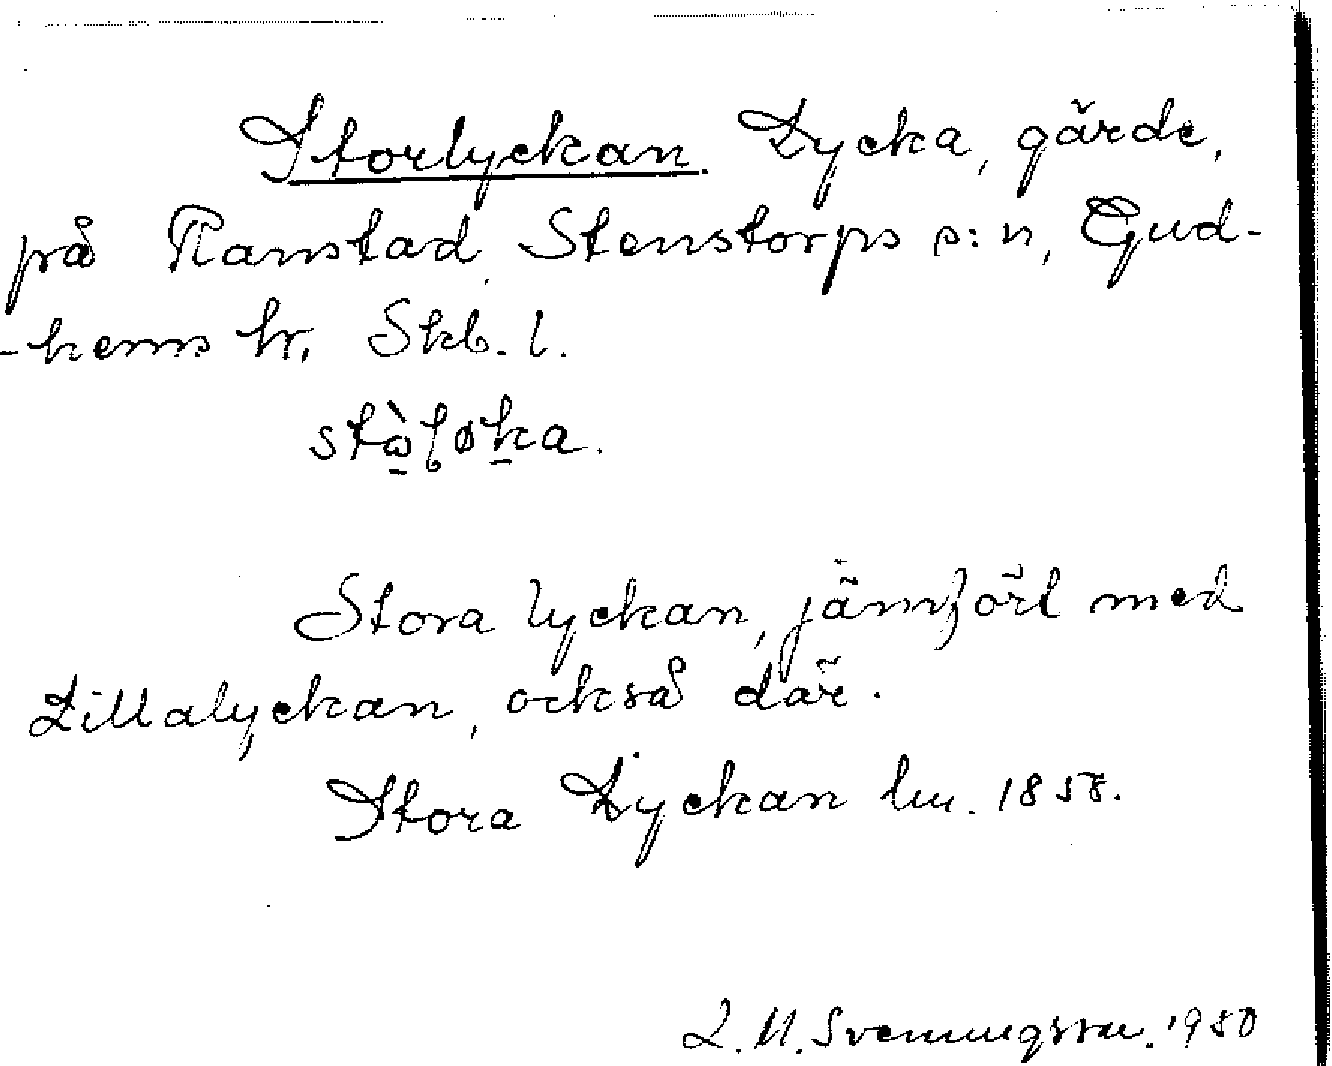 Storlyckan. Lycka, gärde,
på Ranstad, Stenstorps s:n, Gud-
-hems hr, Skb. l.
Stora lyckan, jämförd med
Lillalyckan, också där.
Stora Lyckan lm. 1858.
L. M. Svenungsson. 1950